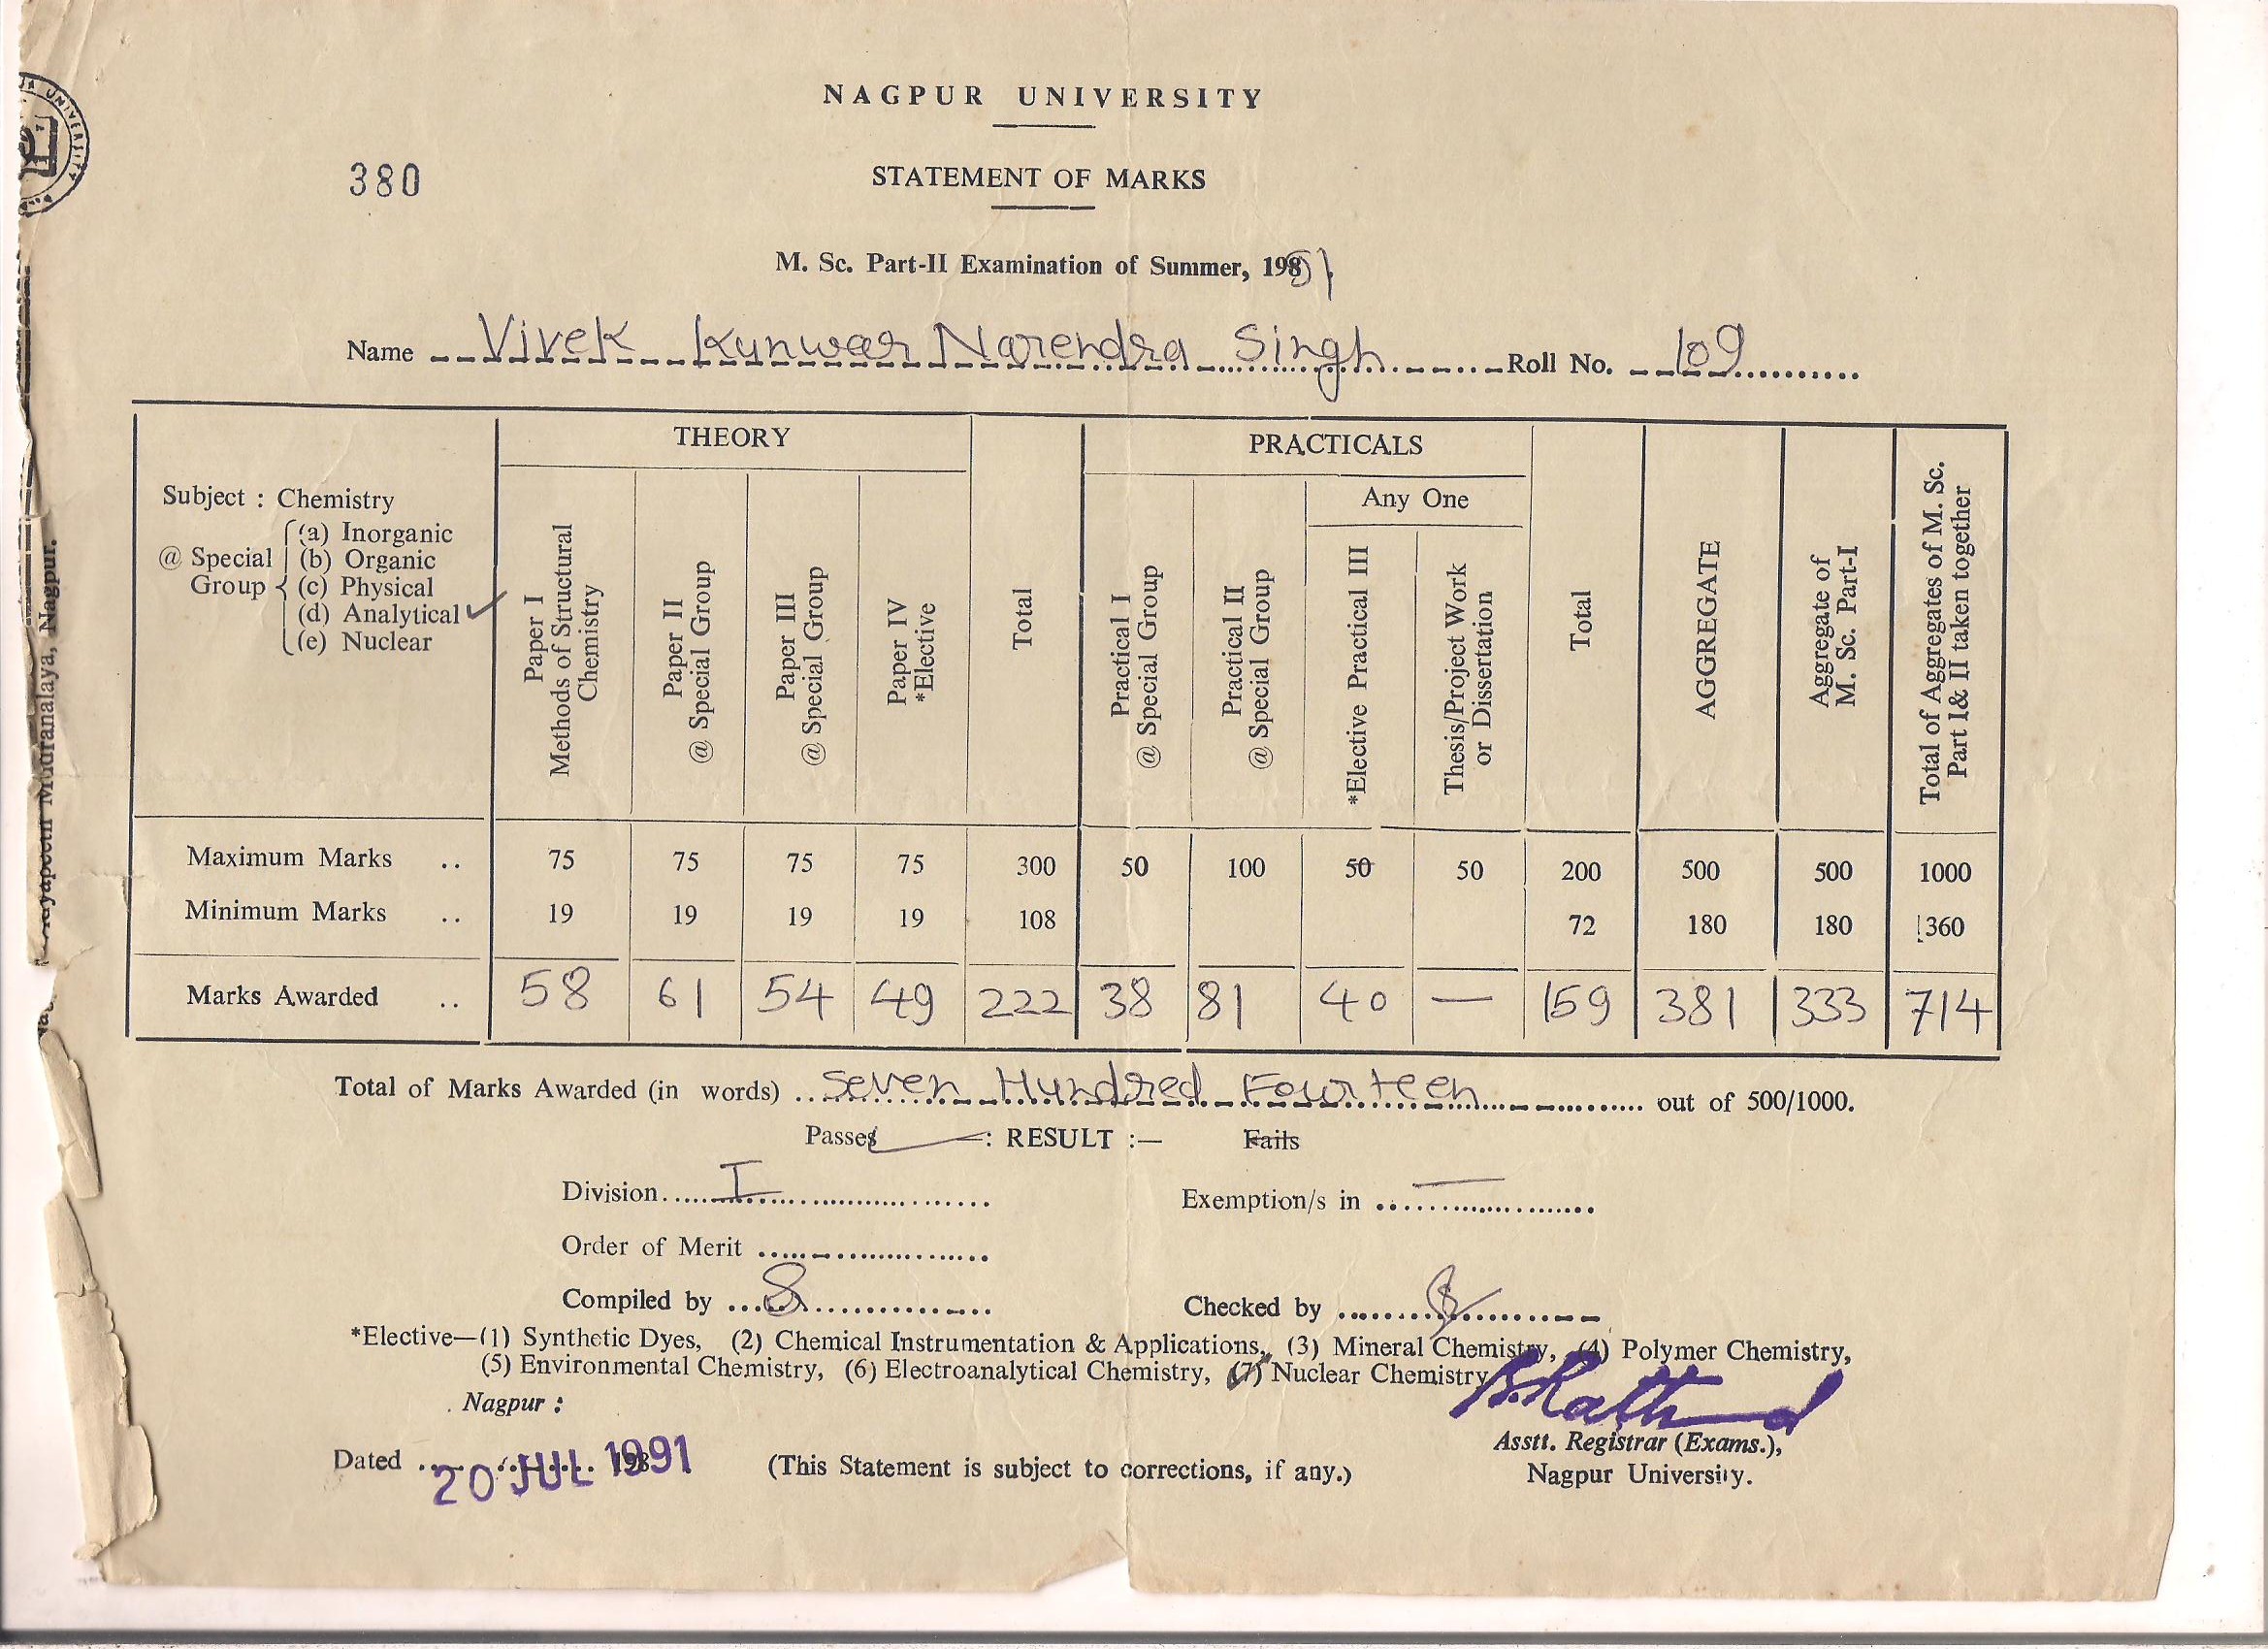 NAGPUR UNIVERSITY
380
STATEMENT OF MARKS
M. Sc. Part-II Examination of Summer, 1991
Name Vivek Kunwar Narendra Singh Roll No. 109
THEORY
PRACTICALS
Subject : Chemistry
@ Special Group
(a) Inorganic
(b) Organic
(c) Physical
(d) Analytical ✓
(e) Nuclear
Paper I Methods of Structural Chemistry
Paper II @ Special Group
Paper III @ Special Group
Paper IV *Elective
Total
Practical I @ Special Group
Practical II @ Special Group
Any One
*Elective Practical III
Thesis/Project Work or Dissertation
Total
AGGREGATE
Aggregate of M. Sc. Part-I
Total of Aggregates of M. Sc. Part I & II taken together
Maximum Marks .. 75 75 75 75 300 50 100 50 50 200 500 500 1000
Minimum Marks .. 19 19 19 19 108 72 180 180 360
Marks Awarded .. 58 61 54 49 222 38 81 40 — 159 381 333 714
Total of Marks Awarded (in words) Seven Hundred Fourteen out of 500/1000.
Passes —: RESULT :— Fails
Division I Exemption/s in —
Order of Merit
Compiled by Checked by
*Elective—(1) Synthetic Dyes, (2) Chemical Instrumentation & Applications, (3) Mineral Chemistry, (4) Polymer Chemistry,
(5) Environmental Chemistry, (6) Electroanalytical Chemistry, (7) Nuclear Chemistry
Nagpur :
Dated 20 JUL 1991 (This Statement is subject to corrections, if any.)
Asstt. Registrar (Exams.),
Nagpur University.
Mudranalaya, Nagpur.
UNIVERSITY